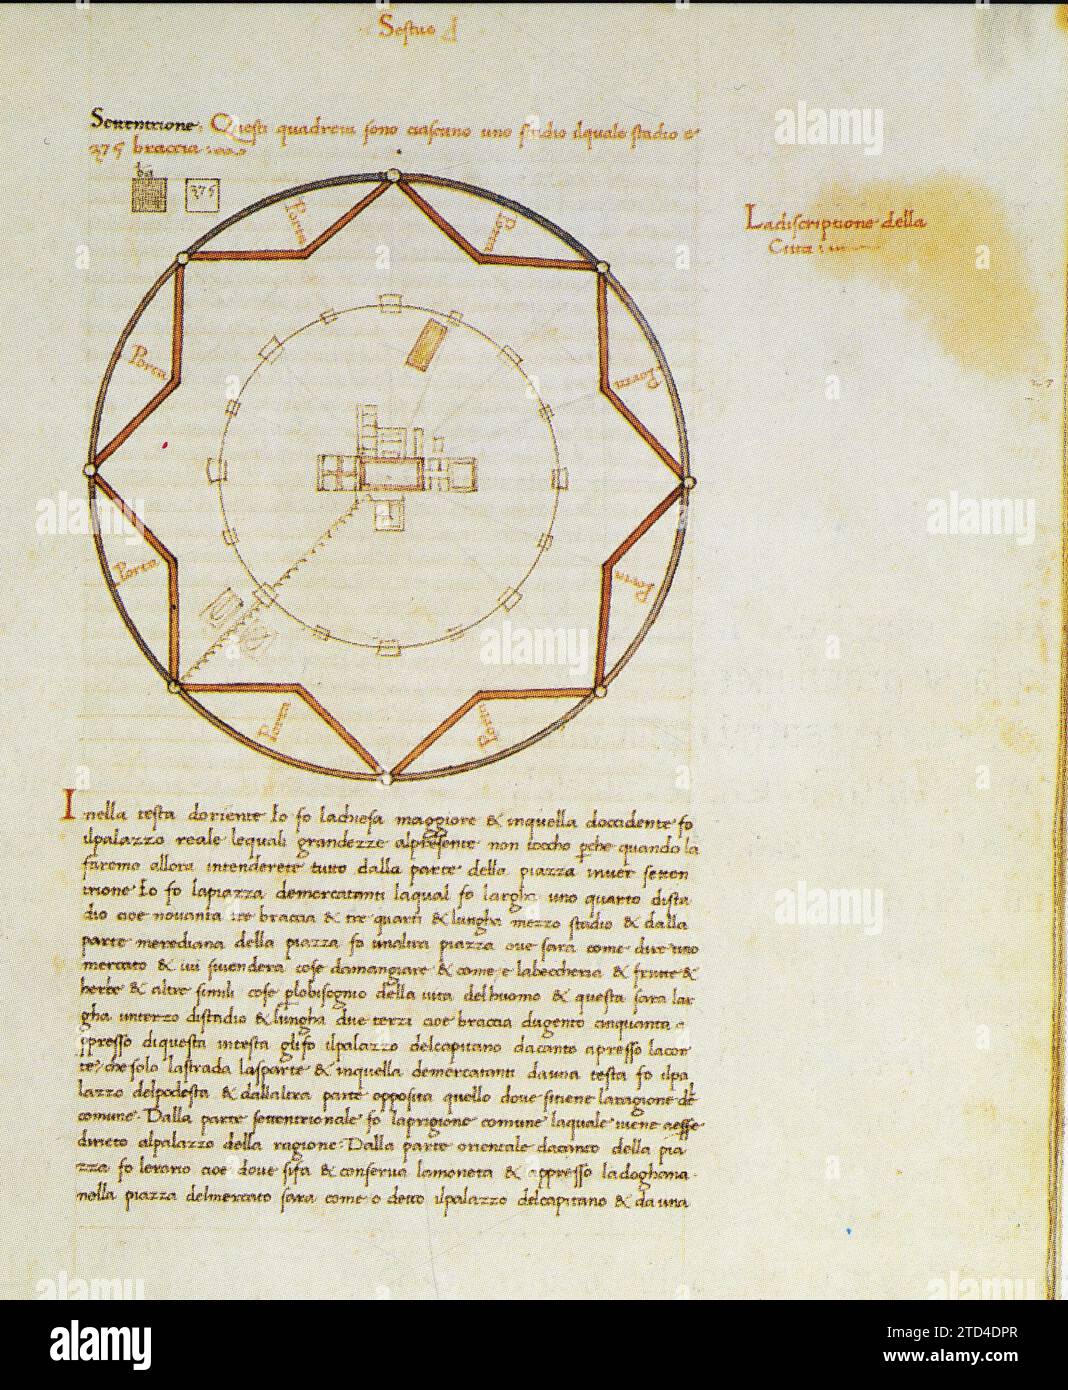 Sestus
Settentrione. Questi quadretti sono ciascuno uno stadio ilquale stadio e
375 braccia
ba
375
Ladiscriptione della
Citta
Porta
Porta
Porta
Porta
Porta
Porta
Porta
Porta
27
Inella testa doriente Io fo lachiesa maggiore & inquella doccidente fo
ilpalazzo reale lequali grandezze alpresente non toccho perche quando la
faremo allora intenderete tutto dalla parte della piazza inver setten
trione Io fo lapiazza demercatanti laqual fo largha uno quarto dista
dio cioe novanta tre braccia & tre quarti & lungha mezzo stadio & dalla
parte merediana della piazza fo unaltra piazza ove sara come dire uno
mercato & ivi sivendera cose damangiare & come e labeccheria & frutte &
herbe & altre simili cose plobisognio della vita delhuomo & questa sara lar
gha unterzo distadio & lungha due terzi cioe braccia dugento cinquanta a
ppresso diquesta intesta glifo ilpalazzo delcapitano dacanto apresso lacor
te, che solo lastrada lasparte & inquella demercatanti dauna testa fo ilpa
lazzo delpodesta & dallaltra parte opposita quello dove sitiene laragione del
comune. Dalla parte settentrionale fo laprigione comune laquale viene aesse
dirieto alpalazzo della ragione. Dalla parte orientale dacanto della pia
zza fo lerario cioe dove sifa & conserva lamoneta & appresso ladoghana.
nella piazza delmercato sara come o detto ilpalazzo delcapitano & da una
alamy
alamy
alamy
alamy
alamy
alamy
alamy
alamy
Image ID: 2TD4DPR
www.alamy.com